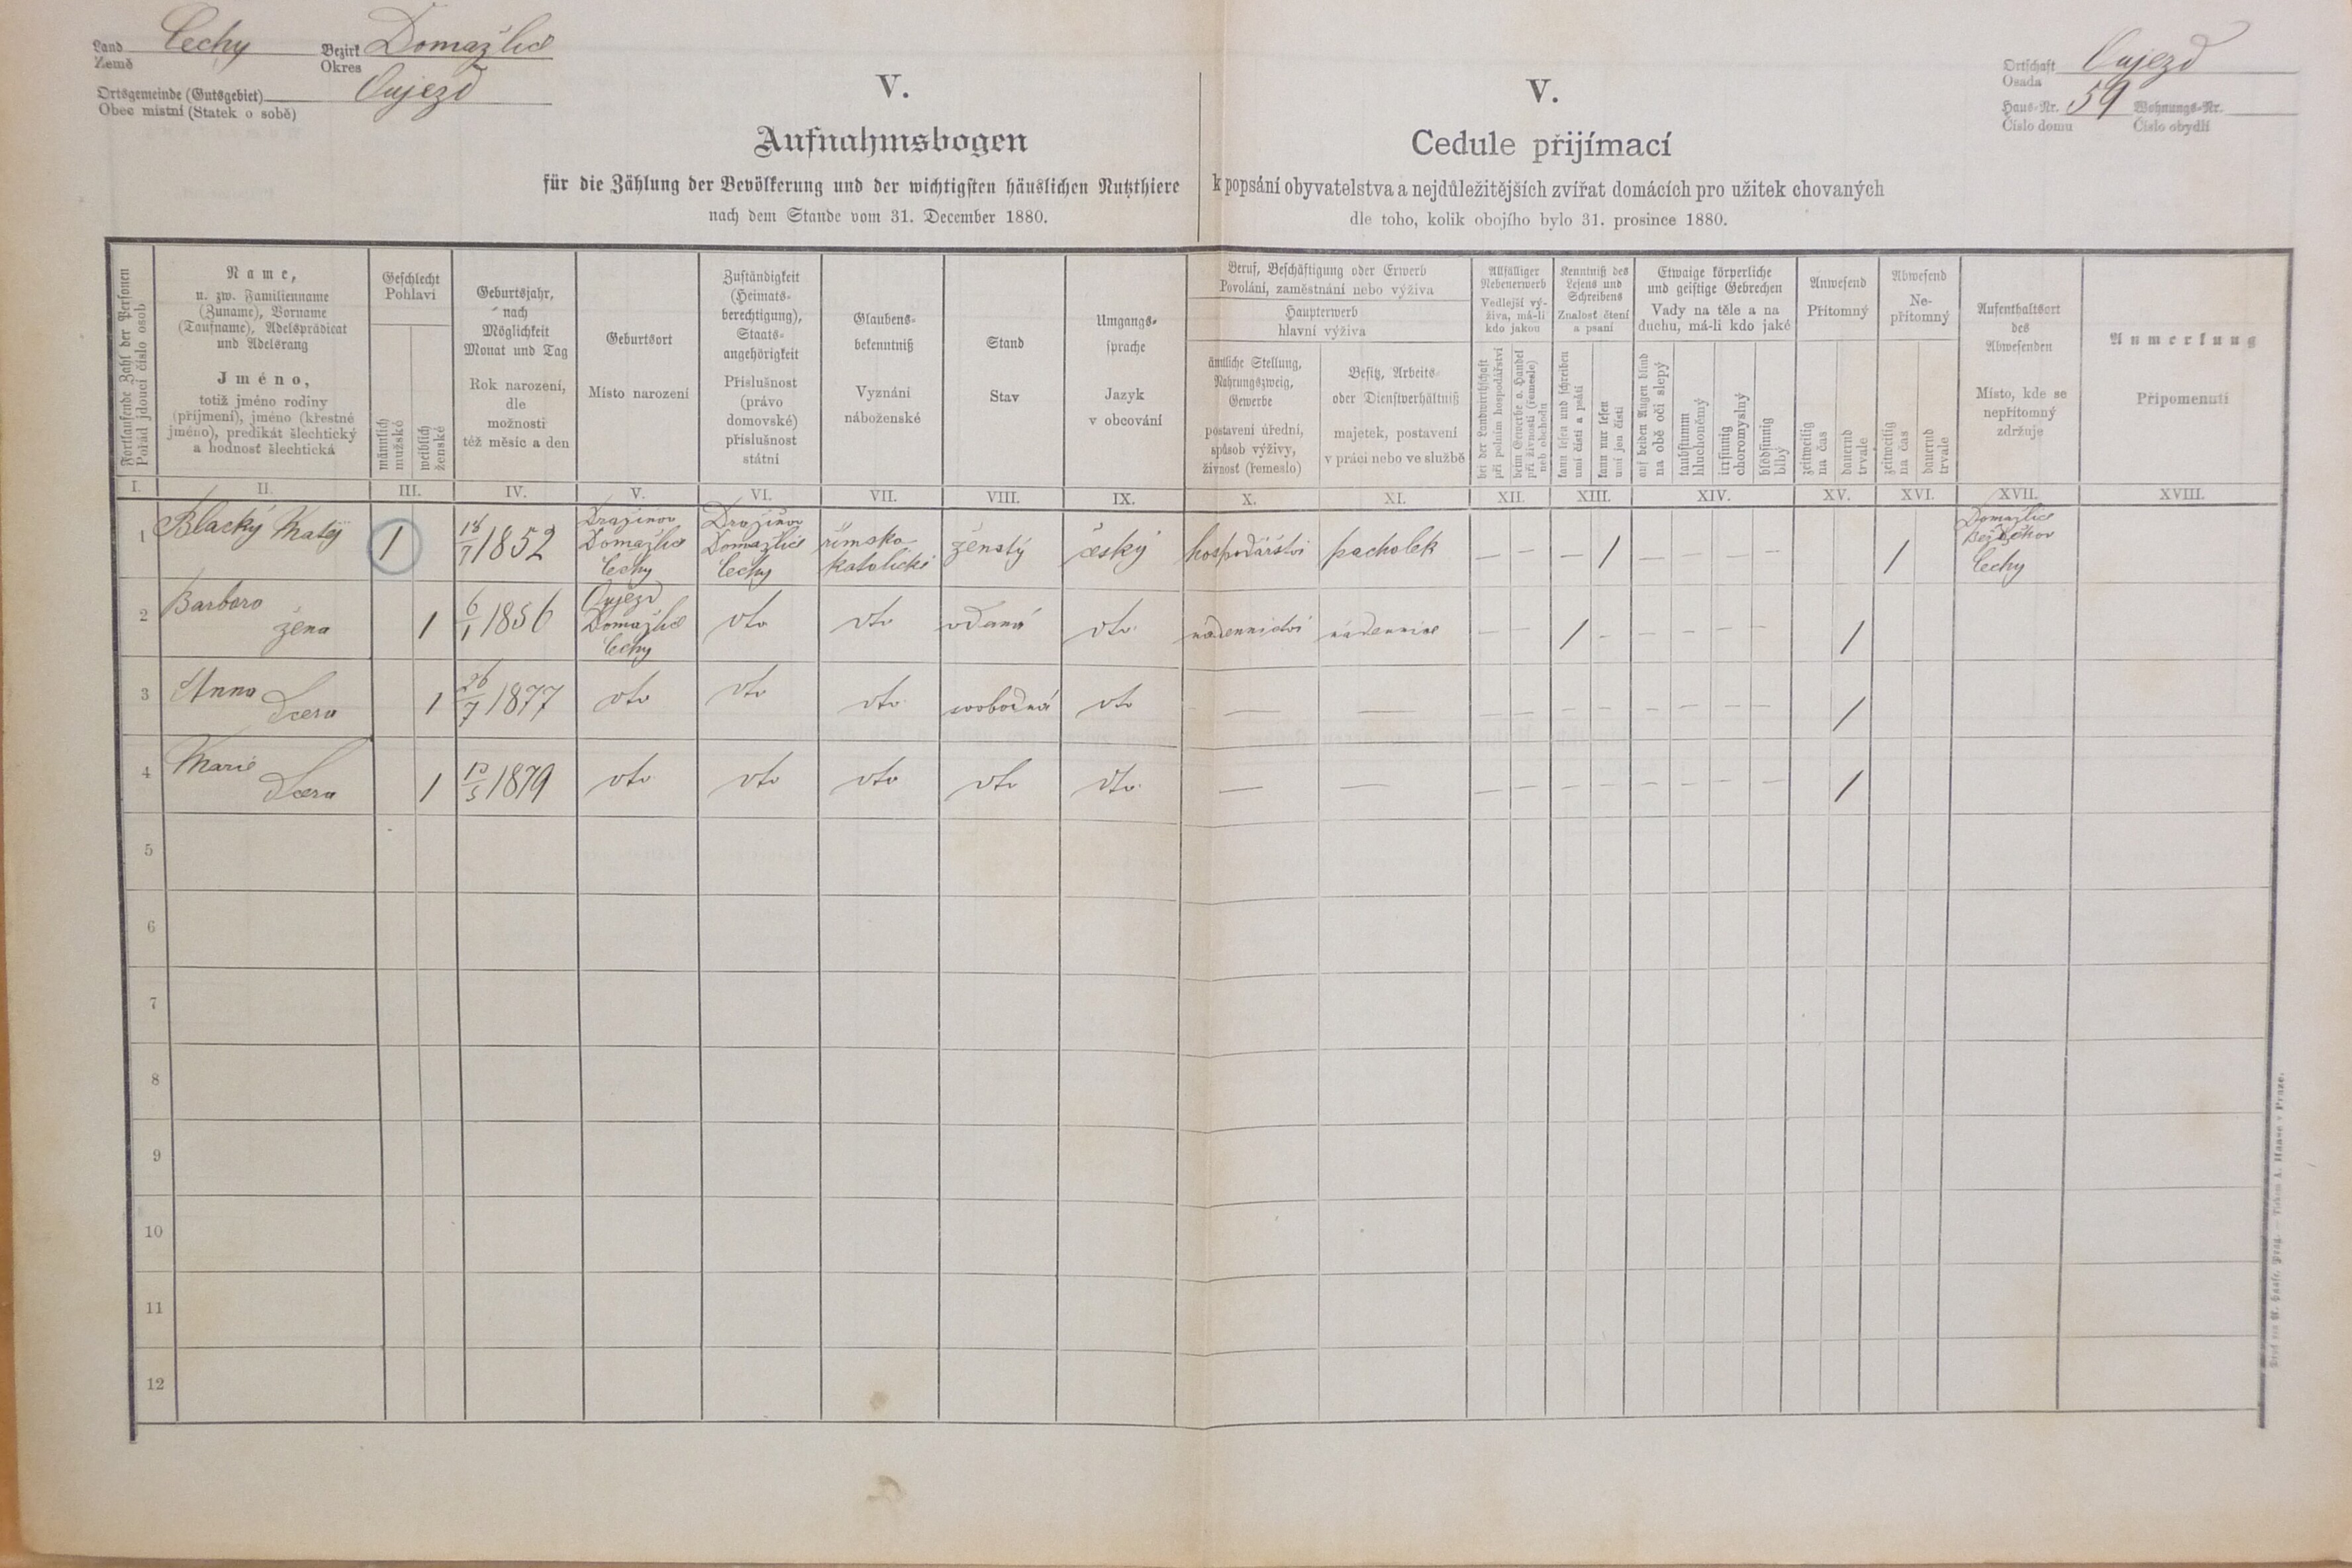 Land Země Čechy Bezirk Okres Domažlice
Ortsgemeinde (Gutsgebiet) Obec místní (Statek o sobě) Oujezd
Ortschaft Osada Oujezd
Haus-Nr. Číslo domu 59 Wohnungs-Nr. Číslo obydlí
V.
Aufnahmsbogen
für die Zählung der Bevölkerung und der wichtigsten häuslichen Nutzthiere
nach dem Stande vom 31. December 1880.
V.
Cedule přijímací
k popsání obyvatelstva a nejdůležitějších zvířat domácích pro užitek chovaných
dle toho, kolik obojího bylo 31. prosince 1880.
Fortlaufende Zahl der Personen
Pořád jdoucí číslo osob
Name,
u. zw. Familienname
(Zuname), Vorname
(Taufname), Adelsprädicat
und Adelsrang
Jméno,
totiž jméno rodiny
(příjmení), jméno (křestné
jméno), predikát šlechtický
a hodnosť šlechtická
Geschlecht
Pohlaví
männlich
mužské
weiblich
ženské
Geburtsjahr,
nach
Möglichkeit
Monat und Tag
Rok narození,
dle
možnosti
též měsíc a den
Geburtsort
Místo narození
Zuständigkeit
(Heimats-
berechtigung),
Staats-
angehörigkeit
Příslušnost
(právo
domovské)
příslušnost
státní
Glaubens-
bekenntniß
Vyznání
náboženské
Stand
Stav
Umgangs-
sprache
Jazyk
v obcování
Beruf, Beschäftigung oder Erwerb
Povolání, zaměstnání nebo výživa
Haupterwerb
hlavní výživa
ämtliche Stellung,
Nahrungszweig,
Gewerbe
postavení úřední,
spůsob výživy,
živnosť (řemeslo)
Besitz, Arbeits-
oder Dienstverhältniß
majetek, postavení
v práci nebo ve službě
Allfälliger
Nebenerwerb
Vedlejší vý-
živa, má-li
kdo jakou
bei der Landwirthschaft
při polním hospodářství
beim Gewerbe o. Handel
při živnosti (řemesle)
neb obchodu
Kenntniß des
Lesens und
Schreibens
Znalosť čtení
a psaní
kann lesen und schreiben
umí čísti a psáti
kann nur lesen
umí jen čísti
Etwaige körperliche
und geistige Gebrechen
Vady na těle a na
duchu, má-li kdo jaké
auf beiden Augen blind
na obě oči slepý
taubstumm
hluchoněmý
irrsinnig
choromyslný
blödsinnig
blbý
Anwesend
Přítomný
zeitweilig
na čas
dauernd
trvale
Abwesend
Ne-
přítomný
zeitweilig
na čas
dauernd
trvale
Aufenthaltsort
des
Abwesenden
Místo, kde se
nepřítomný
zdržuje
Anmerkung
Připomenutí
I. II. III. IV. V. VI. VII. VIII. IX. X. XI. XII. XIII. XIV. XV. XVI. XVII. XVIII.
1 Blacký Matěj 1 18/7 1852 Dražinov Domažlice Čechy Dražinov Domažlice Čechy římsko katolické ženatý český hospodářství pacholek — — — / — — — — / Domažlice Čechy
2 Barbora žena 1 6/1 1856 Oujezd Domažlice Čechy dto dto vdaná dto nádennictví nádennice — — / - — — — — /
3 Anna Dcera 1 26/7 1877 dto dto dto svobodná dto — — — — — — — — — — /
4 Marie Dcera 1 1879 dto dto dto dto dto — — — — — — — — — — /
5
6
7
8
9
10
11
12